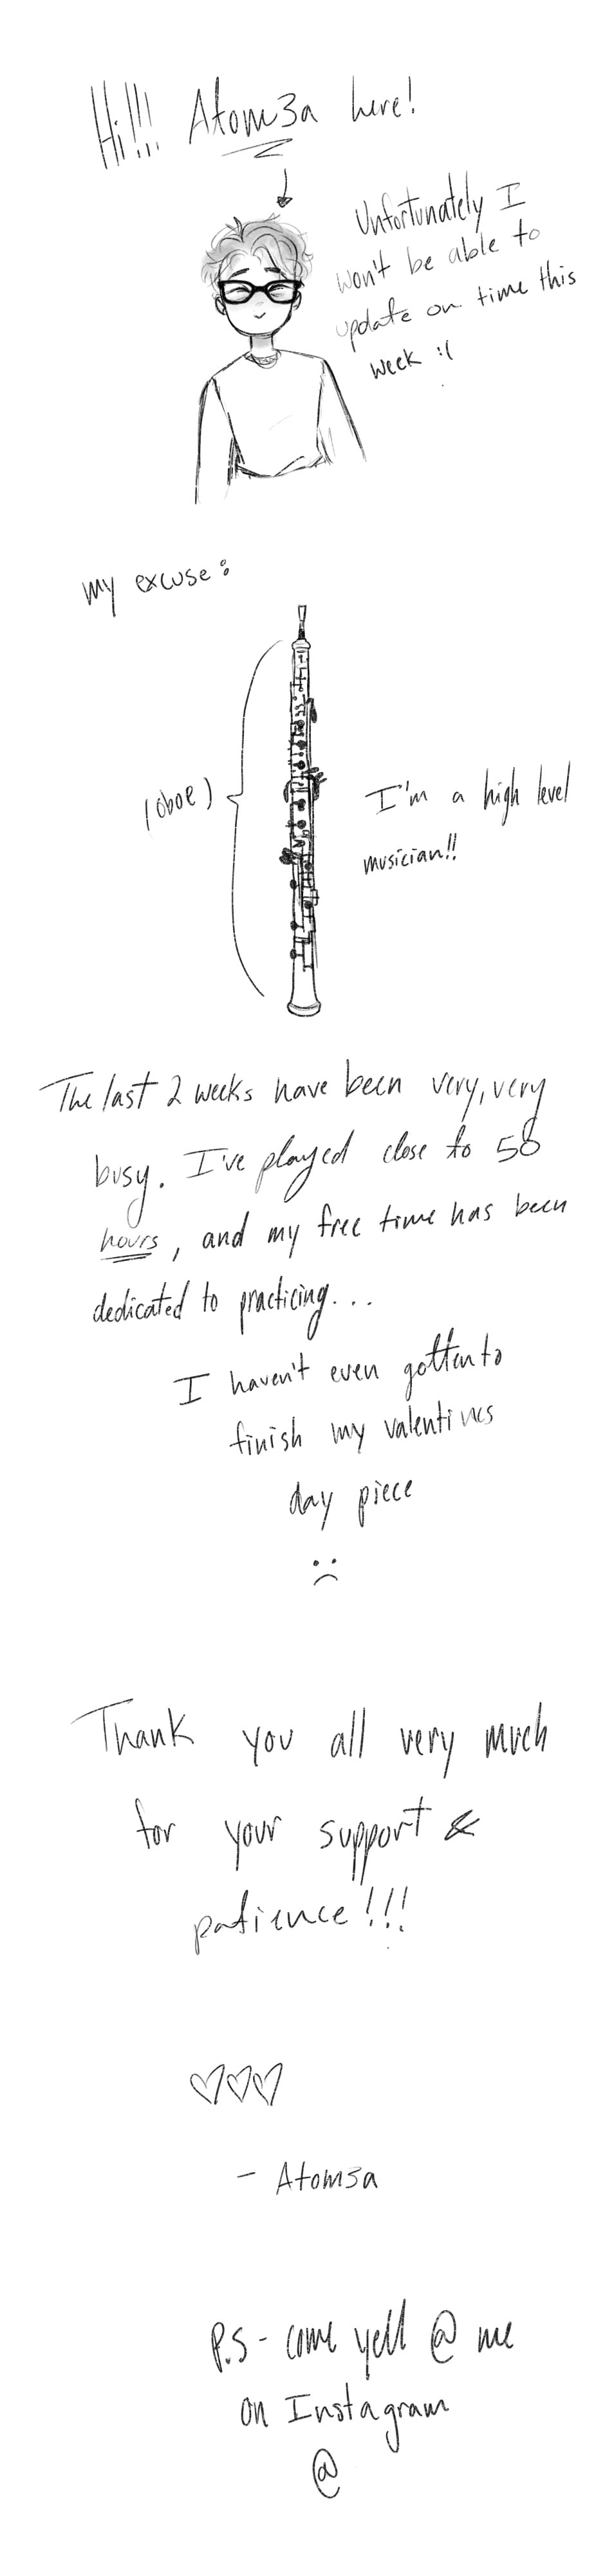 Hi!!! Atom3a here!
Unfortunately I
won't be able to
update on time this
week :(
my excuse:
(oboe)
I'm a high level
musician!!
The last 2 weeks have been very, very
busy. I've played close to 50
hours, and my free time has been
dedicated to practicing...
I haven't even gotten to
finish my valentines
day piece
:(
Thank you all very much
for your support &
patience!!!
♡♡♡
- Atom3a
P.S - come yell @ me
on Instagram
@